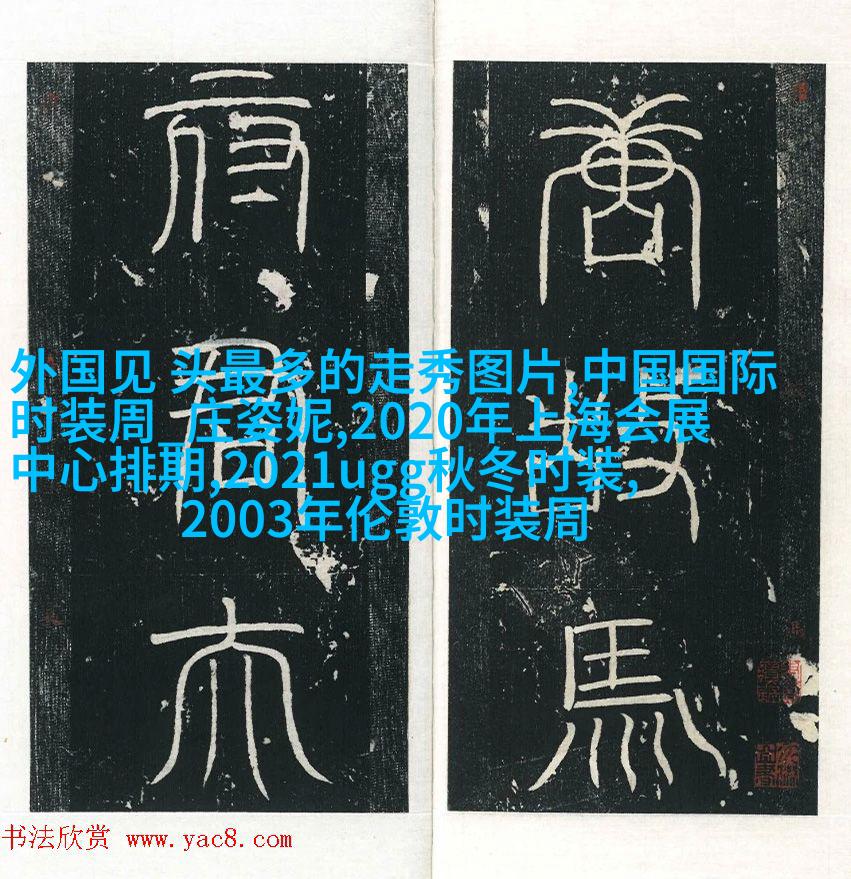 馬
府
君
外国见 头最多的走秀图片,中国国际
时装周_庄姿妮,2020年上海会展
中心排期,2021ugg秋冬时装,
2003年伦敦时装周
书法欣赏 www.yac8.com